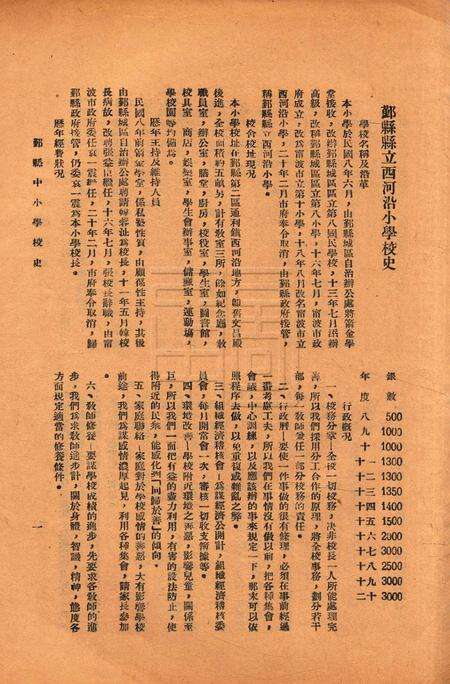 鄞縣縣立西河沿小學校史
學校名稱及沿革
本小學於民國八年六月，由鄞縣城區自治辦公處將當金學
堂接收，改辦鄞縣城區區立第八國民學校，十三年七月添辦
高級，改稱鄞縣城區區立第八小學，十六年七月，甯波市政
府成立，改爲甯波市立第十小學，十八年八月改名甯波市立
西河沿小學，二十年二月市府奉令取消，由鄞縣政府接管，
稱鄞縣縣立西河沿小學。
校舍校地現況
本小學校址在鄞縣第二區通利鎮西河沿地方，卽舊文昌殿
後進，全校面積約五畝另，計有教室三所，除如紀念廳，教
職員室，辦公室，膳堂，廚房，校役室，學生室，圖書館，
學校商店，娛樂室，學生會辦事室，儲藏室，運動場，
學校園等均備焉。
歷年主持及維持人員
民國八年前當金學堂，係私塾性質，由顧葆性主持，其後
由鄞縣城區自治辦公處聘請韓蓉汕爲校長，十一年五月韓校
長病故，改聘張益臣繼任，十六年七月，張校長辭職，由甯
波市政府委任袁一震繼任，二十年二月，市府奉令取消，歸
鄞縣政府接管，仍委袁一震爲本小學校長。
歷年經費狀況
年度 八 九 十 十一 十二 十三 十四 十五 十六 十七 十八 十九 二十
銀數 500 1000 1000 1300 1300 1350 1400 1500 2000 2500 3000 3000
行政概況
一、校務分掌—全校一切校務，決非校長一人所能處理完
善，所以我們採用分工合作的原理，將全校事務，劃分若干
部，每一教師兼任一部分校務的責任。
二、行政歷—要使一件事做的很有條理，必須在事前經過
一番考慮工夫，所以我們在事情沒有做以前，把各種集會，
會議，中心訓練，以及應該辦的事來規定一下，那末可以依
照程序去做，以免重複或紛亂之弊。
三、組織經濟稽核委員會—爲謀經濟公開計，組織經濟稽核委
員會，每月開常會一次，審核一切收支預據等。
四、環境改善—學校附近環境之善惡，影響兒童，關係至
巨，所以我們一面把有益的盡力利用，有害的設法防止，使
得附近的民衆，能感化其「回歸於善」的傾向。
五、家庭聯絡—家庭對於學校感情的善惡，大有影響學校
前途，我們爲謀感情濃厚起見，利用各種集會，請家長參加
六、教師修養—要謀學校成績的進步，先要求各教師的進
步，我們爲求教師進步計，關於身體，智識，精神，態度各
方面規定適當的修養條件。
鄞縣中小學校史
一